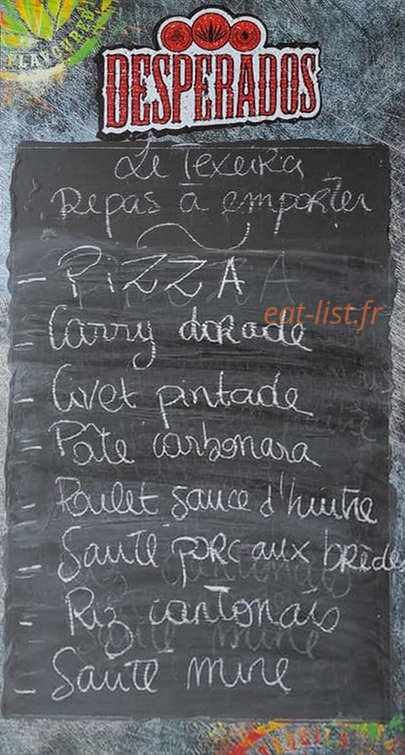 FLAVOURED
DESPERADOS
Le Texeira
Repas à emporter
- PiZZA
eat-list.fr
- Carry dorade
- Civet pintade
- Pâte carbonara
- Poulet sauce d'huitre
- Sauté porc aux brèdes
- Riz cantonais
- Sauté mine